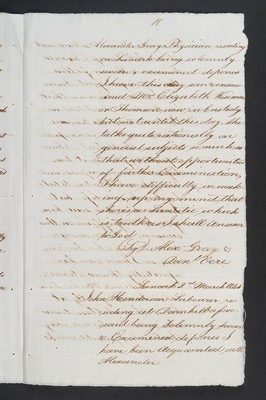 Alexander Gray Physician residing
in Lanark being solemnly
sworn & examined depones
I have this day seen & exam
ined Mrs Elizabeth
or Thomson now in custody
She
talks quite rationally on
general subjects so much so
that without opportunities
of further Examination
I have difficulty in mak
ing up my mind that
she is a lunatic which
is truth as I shall answer
to God
Alex. Gray
Lanark 2nd March 1844
John Henderson Labourer re
siding at
said being Solemnly sworn
& Examined depones I
have been Acquainted with
Alexander